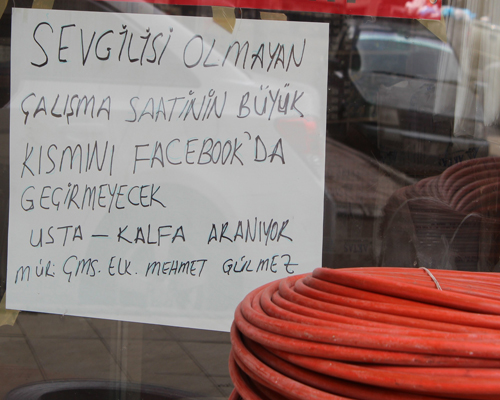 SEVGİLİSİ OLMAYAN
ÇALIŞMA SAATİNİN BÜYÜK
KISMINI FACEBOOK'DA
GEÇİRMEYECEK
USTA - KALFA ARANIYOR
MÜR: ÇMŞ. ELK. MEHMET GÜLMEZ